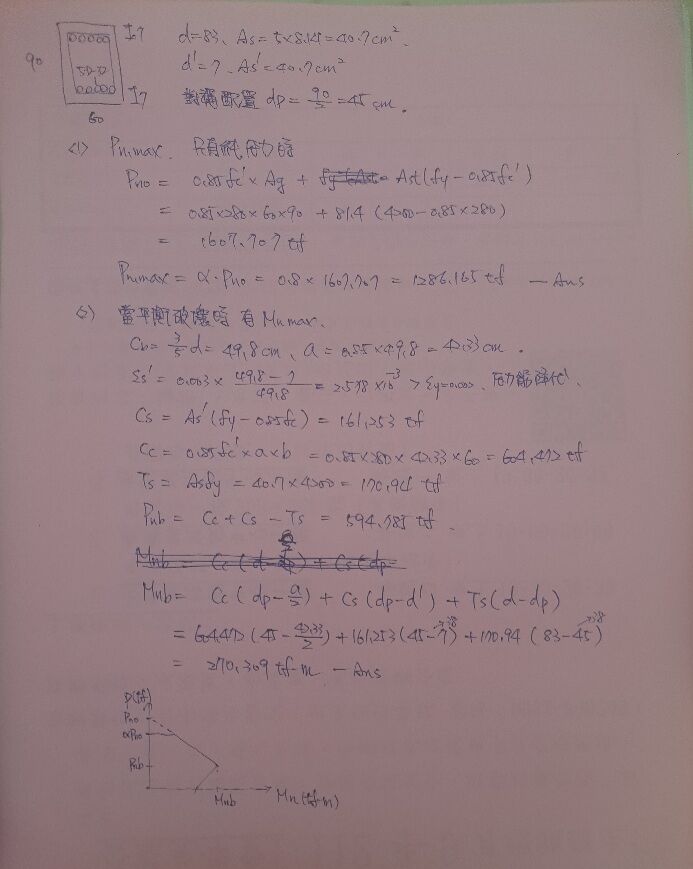 I7 d=83、As=5×8.14=40.7cm²、
90 5D-D d'=7、As'=40.7cm²
I7 對稱配置 dp=90/2=45cm。
60
<1> Pn,max. 只有純壓力時
Pno = 0.85fc'×Ag + Ast(fy-0.85fc')
= 0.85×280×60×90 + 81.4(4200-0.85×280)
= 1607.707 tf
Pn,max = α·Pno = 0.8×1607.707 = 1286.165 tf — Ans
<2> 當平衡破壞時有Mn,max.
Cb = 3/5 d = 49.8cm、a = 0.85×49.8 = 42.33cm。
εs' = 0.003 × (49.8-7)/49.8 = 2.578×10⁻³ > εy=0.002、
Cs = As'(fy-0.85fc) = 161.253 tf
Cc = 0.85fc'×a×b = 0.85×280×42.33×60 = 604.472 tf
Ts = Asfy = 40.7×4200 = 170.94 tf
Pnb = Cc+Cs-Ts = 594.785 tf.
Mnb = Cc(dp-a/2) + Cs(dp-d') + Ts(d-dp)
= 604.472(45-42.33/2) + 161.253(45-7) + 170.94(83-45)
= 270.309 tf-m — Ans
P(tf)
Pno
αPno
Pnb
Mnb Mn(tf-m)